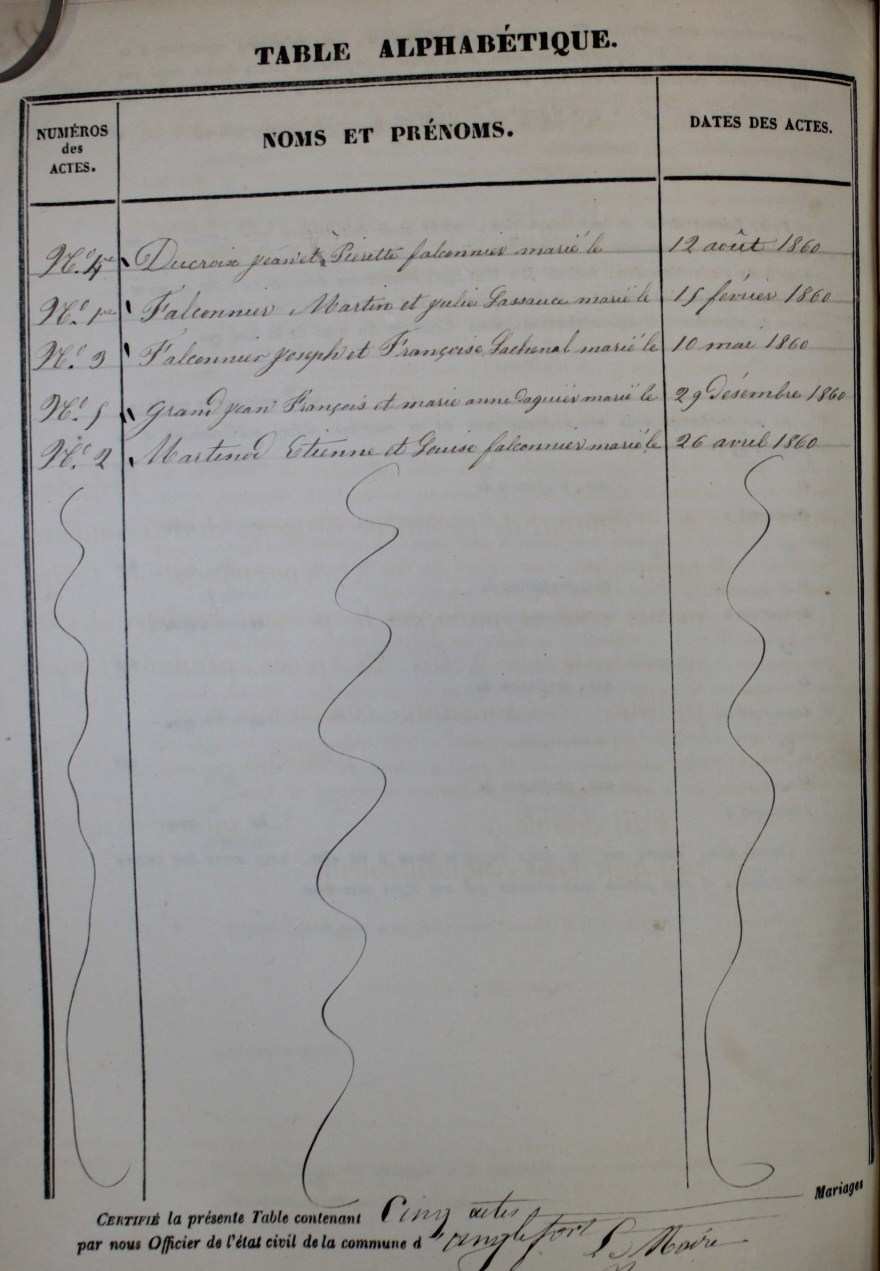 TABLE ALPHABÉTIQUE.
NUMÉROS des ACTES. NOMS ET PRÉNOMS. DATES DES ACTES.
N.º 4 Ducroix jean et Pierette falconnier marié le 12 août 1860
N.º 1er Falconnier Martin et julie Lassauce marié le 15 février 1860
N.º 3 Falconnier joseph et Françoise Lachenal marié le 10 mai 1860
N.º 5 grand jean François et marie anne Daguier marié le 29 Désembre 1860
N.º 2 Martinod Etienne et Louise falconnier marié le 26 avril 1860
Mariages
CERTIFIÉ la présente Table contenant Cinq actes
par nous Officier de l'état civil de la commune d'anglefort Le Maire